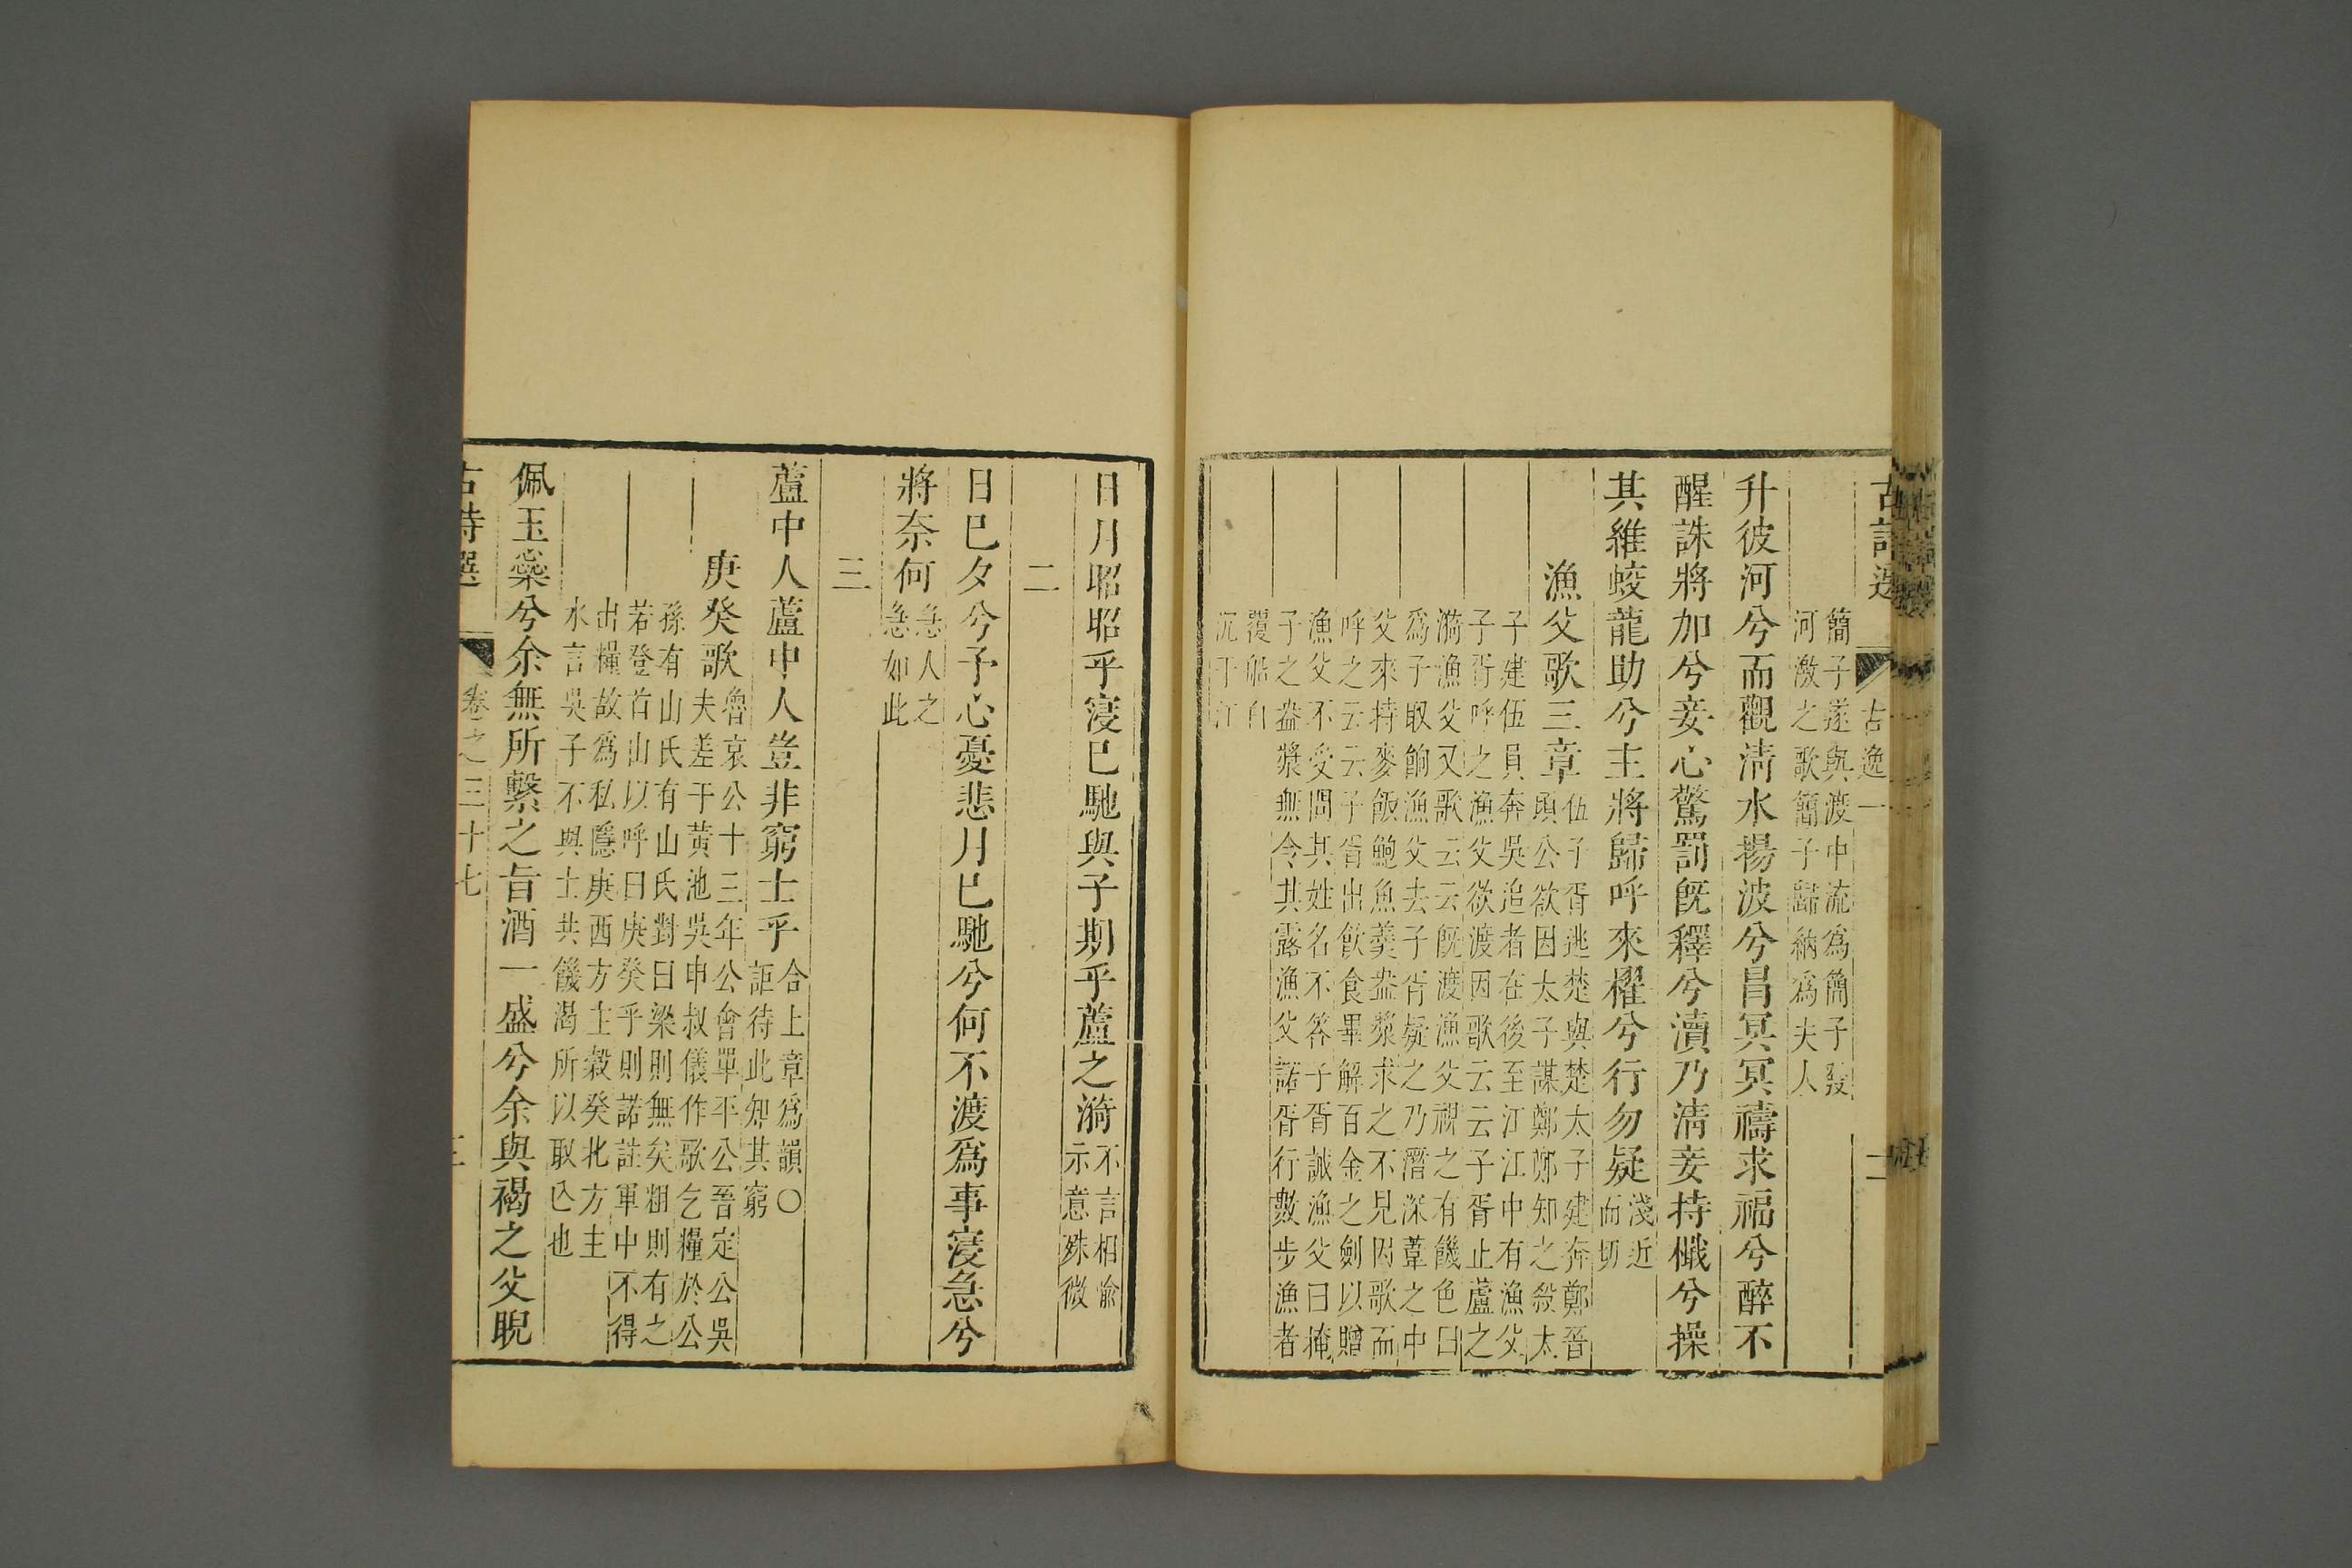 簡子遂與渡中流爲簡子發
河激之歌簡子歸納爲夫人
升彼河兮而觀清水揚波兮冒冥冥禱求福兮醉不
醒誅將加兮妾心驚罰旣釋兮瀆乃清妾持檝兮操
其維蛟龍助兮主將歸呼來櫂兮行勿疑淺近
而切
漁父歌三章伍子胥逃楚與楚太子建奔鄭晉
頃公欲因太子謀鄭鄭知之殺太
子建伍員奔吳追者在後至江江中有漁父
子胥呼之漁父欲渡因歌云云子胥止蘆之
漪漁父又歌云云旣渡漁父視之有饑色曰
爲子取餉漁父去子胥疑之乃潛深葦之中
父來持麥飯鮑魚羹盎漿求之不見因歌而
呼之云云子胥出飲食畢解百金之劍以贈
漁父不受問其姓名不答子胥誡漁父曰掩
子之盎漿無令其露漁父諾胥行數步漁者
覆船自
沉于江
日月昭昭乎寖已馳與子期乎蘆之漪不言相喻
示意殊微
二
日已夕兮予心憂悲月已馳兮何不渡爲事寖急兮
將奈何急人之
急如此
三
蘆中人蘆中人豈非窮士乎合上章爲韻○
詎待此知其窮
庚癸歌魯哀公十三年公會單平公晉定公吳
夫差于黃池吳申叔儀作歌乞糧於公
孫有山氏有山氏對曰梁則無矣粗則有之
若登首山以呼曰庚癸乎則諾註軍中不得
出糧故爲私隱庚西方主穀癸北方主
水言吳子不與士共饑渴所以取亡也
佩玉橤兮余無所繫之旨酒一盛兮余與褐之父睨
古詩選
卷之三十七